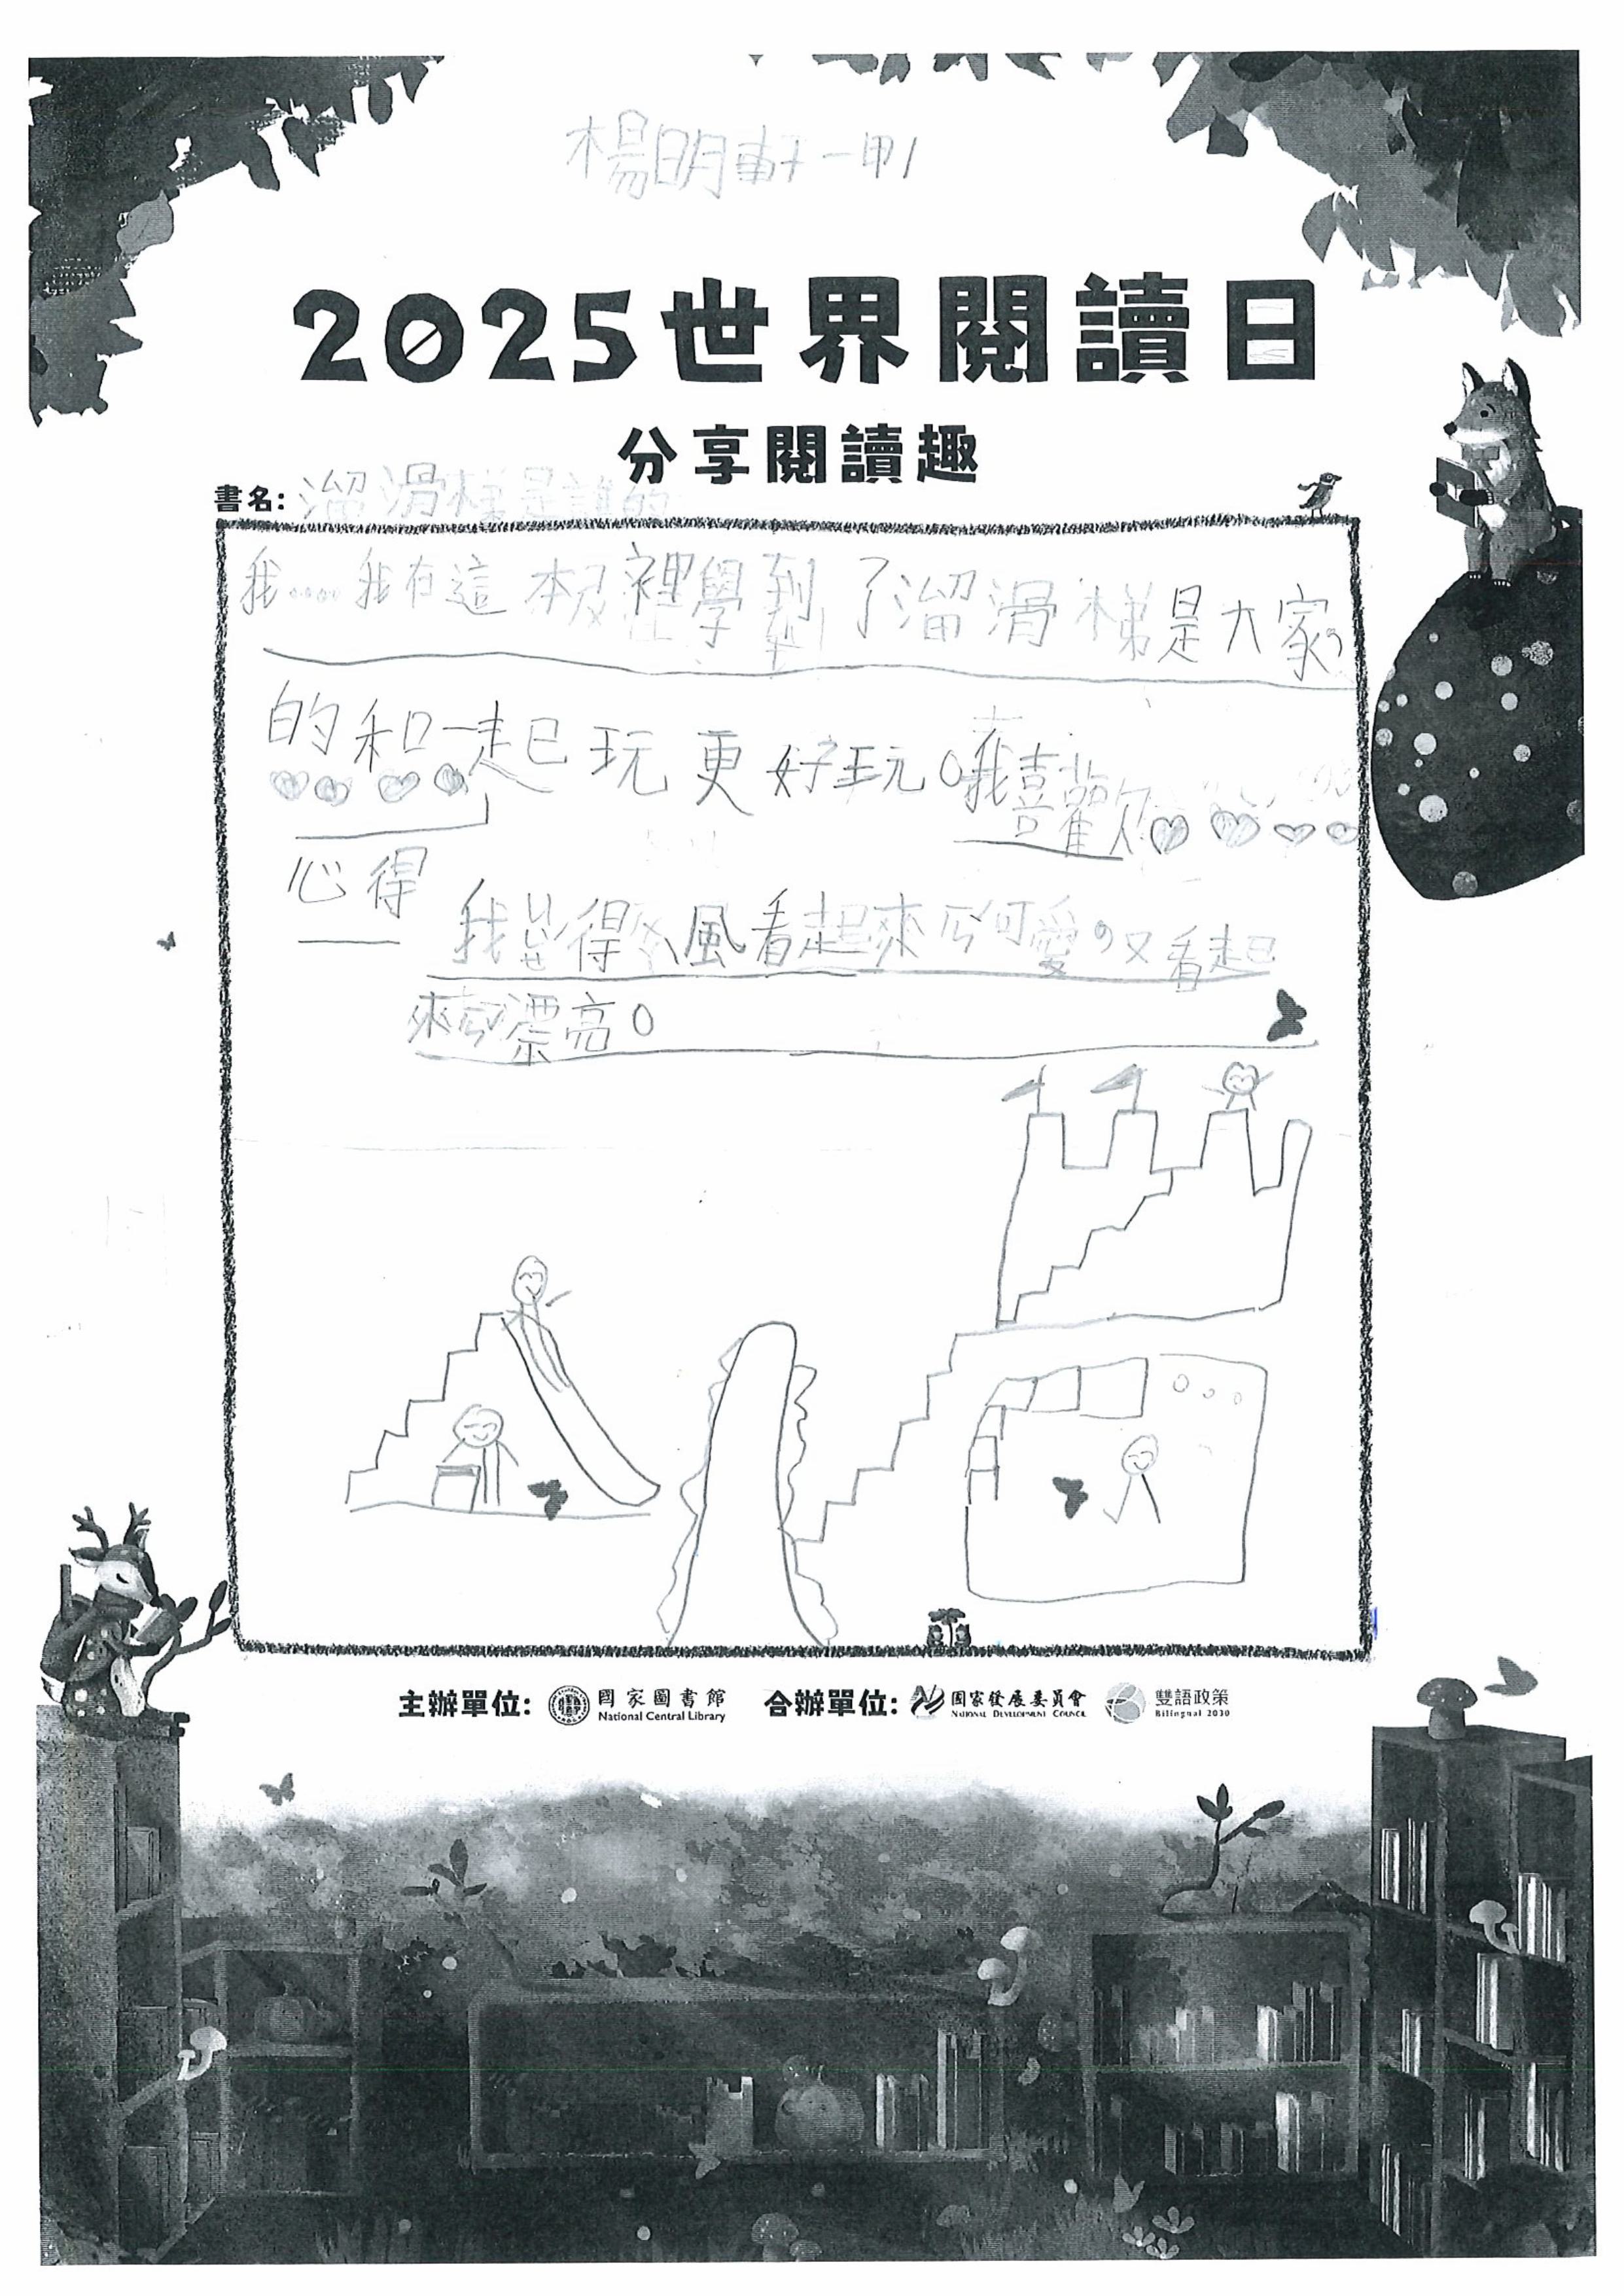 楊明軒一甲1
2025世界閱讀日
分享閱讀趣
書名：溜滑梯是誰的
我……我在這本裡學到了溜滑梯是大家
的和一起玩更好玩。我喜歡
心得
我 得 風看起來ㄏ可愛，又看起
來 漂亮。
主辦單位： 國家圖書館 National Central Library 合辦單位： 國家發展委員會 National Development Council 雙語政策 Bilingual 2030